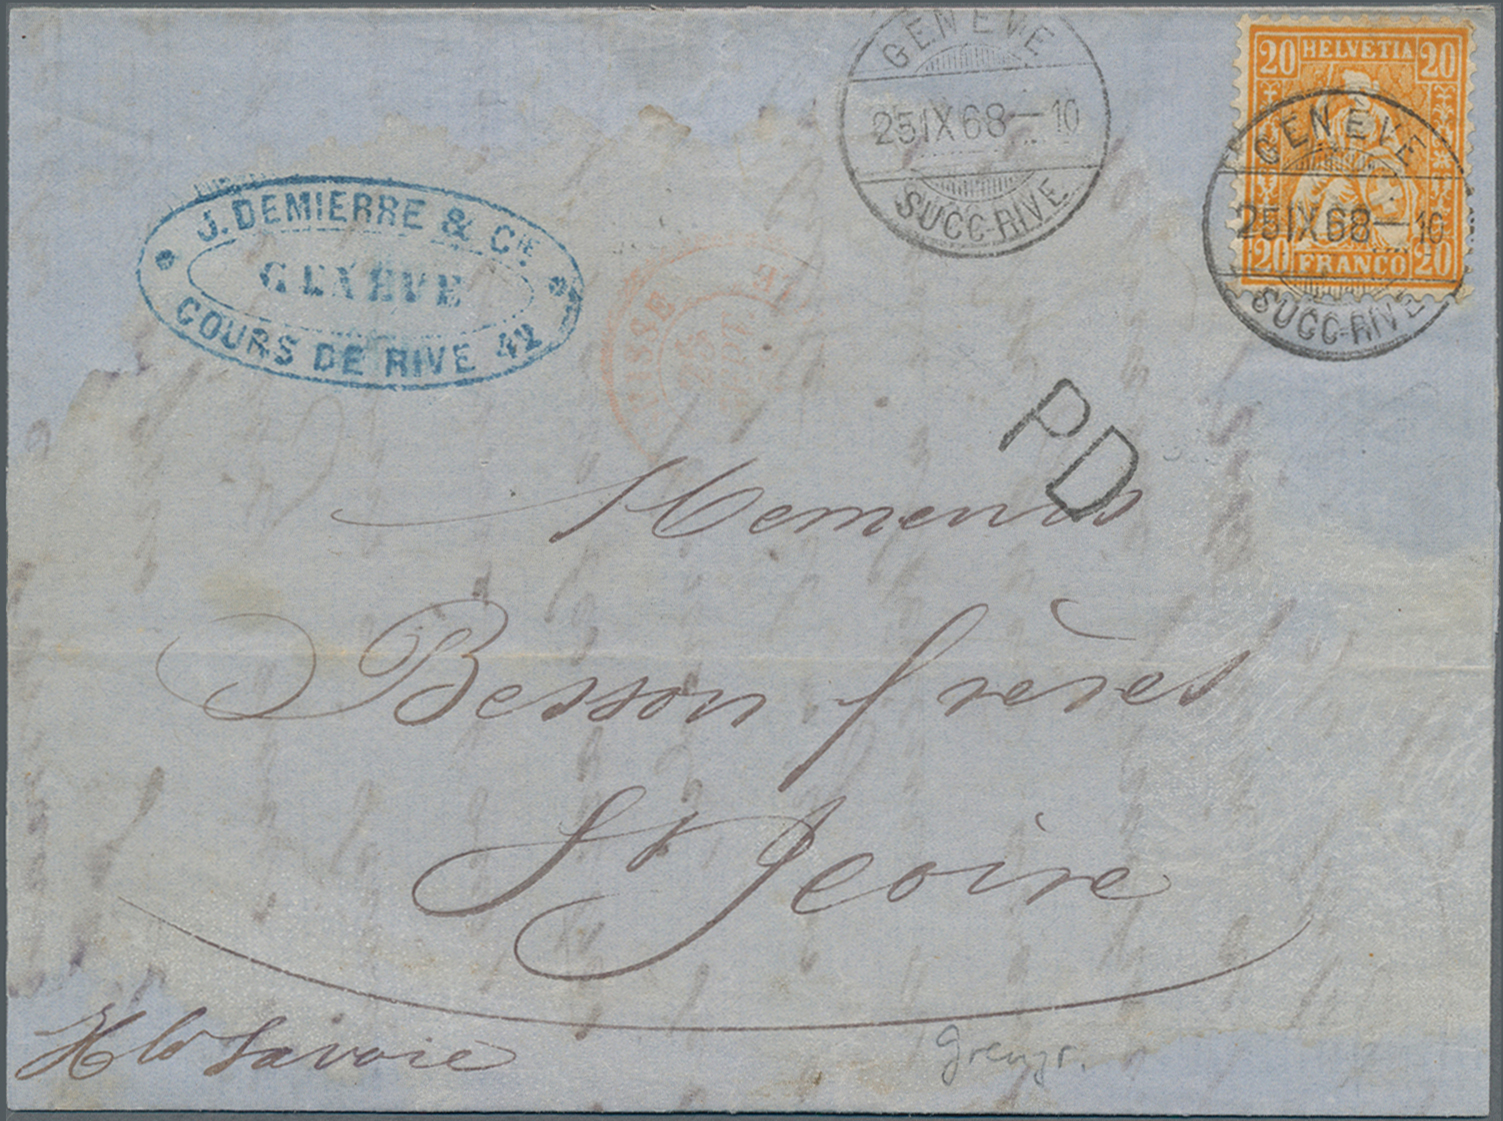 GENEVE
25 IX 68 — 10
SUCC-RIVE
20 HELVETIA 20
GENEVE
25 IX 68 — 10
SUCC-RIVE
20 FRANCO 20
J. DEMIERRE & CIE.
GENÈVE
COURS DE RIVE 42
SUISSE
PD
Besson frères
St Jeoire
Hte Savoie
Grenzr.